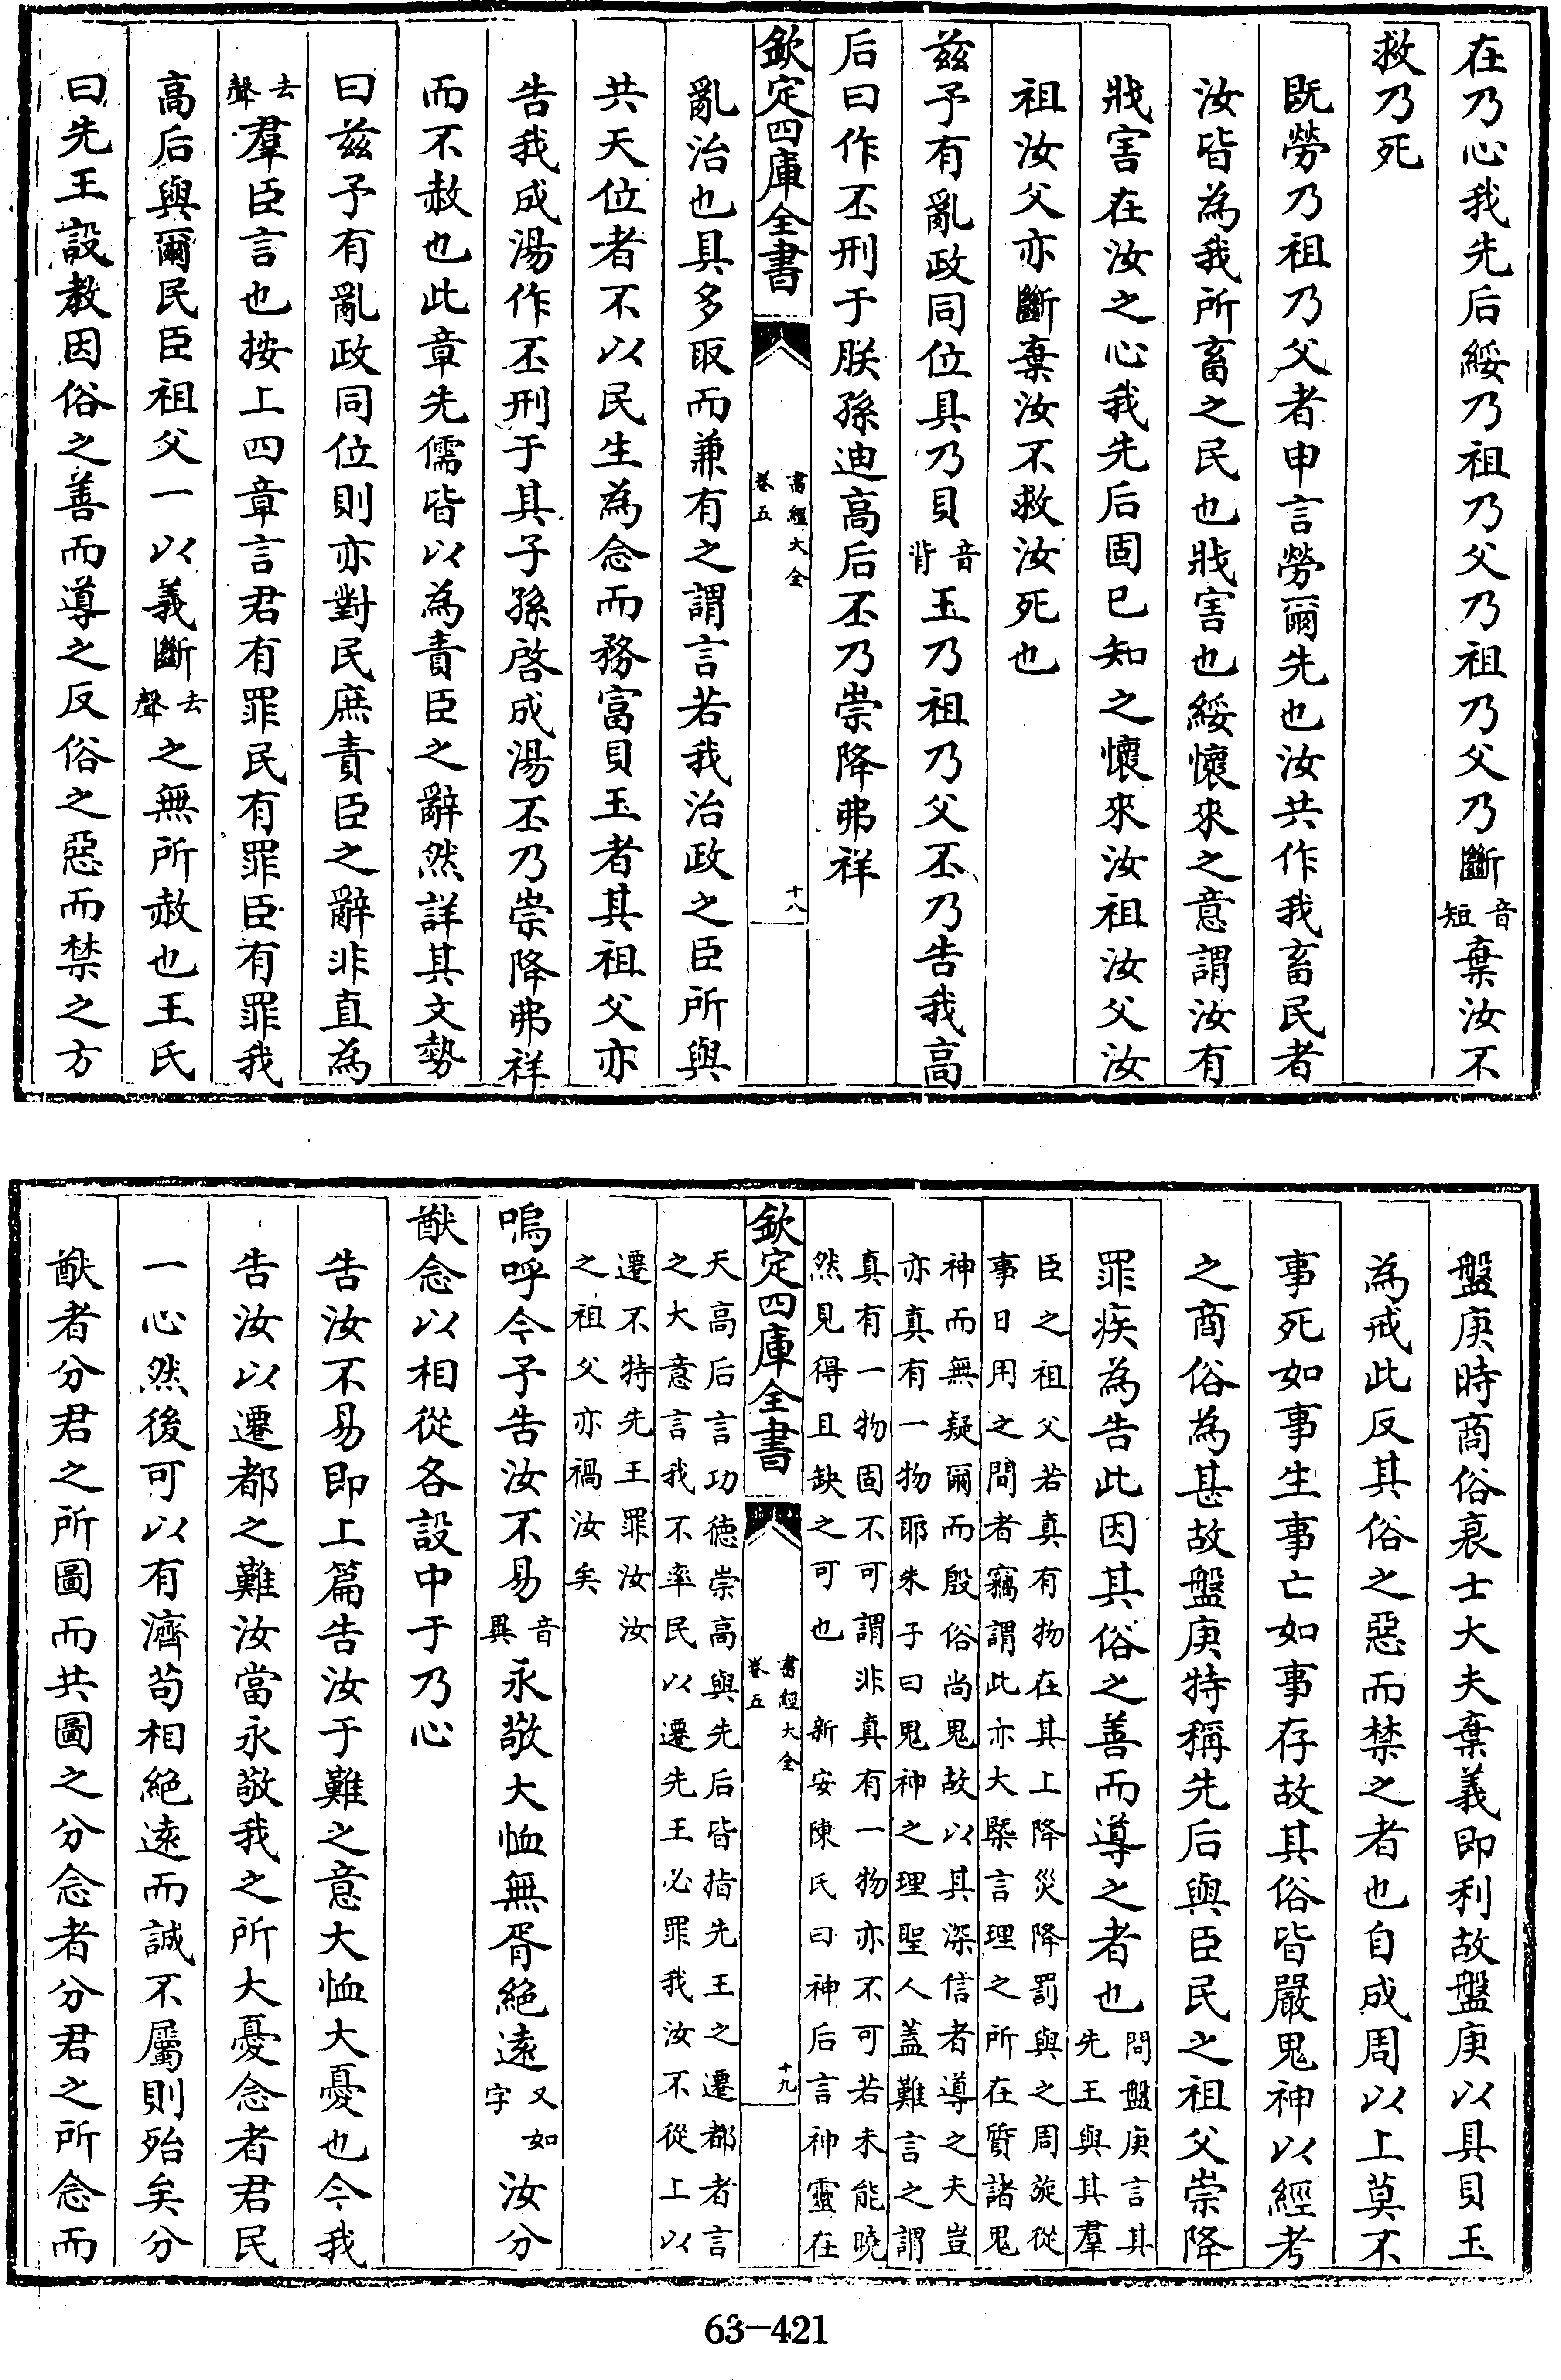 在乃心我先后綏乃祖乃父乃祖乃父乃斷音短棄汝不
救乃死
既勞乃祖乃父者申言勞爾先也汝共作我畜民者
汝皆為我所畜之民也戕害也綏懷來之意謂汝有
戕害在汝之心我先后固已知之懷來汝祖汝父汝
祖汝父亦斷棄汝不救汝死也
兹予有亂政同位具乃貝音背玉乃祖乃父丕乃告我高
后曰作丕刑于朕孫迪高后丕乃崇降弗祥
欽定四庫全書
書經大全
卷五
十八
亂治也具多取而兼有之謂言若我治政之臣所與
共天位者不以民生為念而務富貝玉者其祖父亦
告我成湯作丕刑于其子孫啓成湯丕乃崇降弗祥
而不赦也此章先儒皆以為責臣之辭然詳其文勢
曰兹予有亂政同位則亦對民庶責臣之辭非直為
去聲羣臣言也按上四章言君有罪民有罪臣有罪我
高后與爾民臣祖父一以義斷去聲之無所赦也王氏
曰先王設教因俗之善而導之反俗之惡而禁之方
盤庚時商俗衰士大夫棄義即利故盤庚以具貝玉
為戒此反其俗之惡而禁之者也自成周以上莫不
事死如事生事亡如事存故其俗皆嚴鬼神以經考
之商俗為甚故盤庚特稱先后與臣民之祖父崇降
罪疾為告此因其俗之善而導之者也問盤庚言其
先王與其羣
臣之祖父若真有物在其上降災降罰與之周旋從
事日用之間者竊謂此亦大槩言理之所在質諸鬼
神而無疑爾而殷俗尚鬼故以其深信者導之夫豈
亦真有一物耶朱子曰鬼神之理聖人蓋難言之謂
真有一物固不可謂非真有一物亦不可若未能曉
然見得且缺之可也 新安陳氏曰神后言神靈在
欽定四庫全書
書經大全
卷五
十九
天高后言功德崇高與先后皆指先王之遷都者言
之大意言我不率民以遷先王必罪我汝不從上以
遷不特先王罪汝汝
之祖父亦禍汝矣
嗚呼今予告汝不易音異永敬大恤無胥絶遠又如字汝分
猷念以相從各設中于乃心
告汝不易即上篇告汝于難之意大恤大憂也今我
告汝以遷都之難汝當永敬我之所大憂念者君民
一心然後可以有濟苟相絶遠而誠不屬則殆矣分
猷者分君之所圖而共圖之分念者分君之所念而
63-421